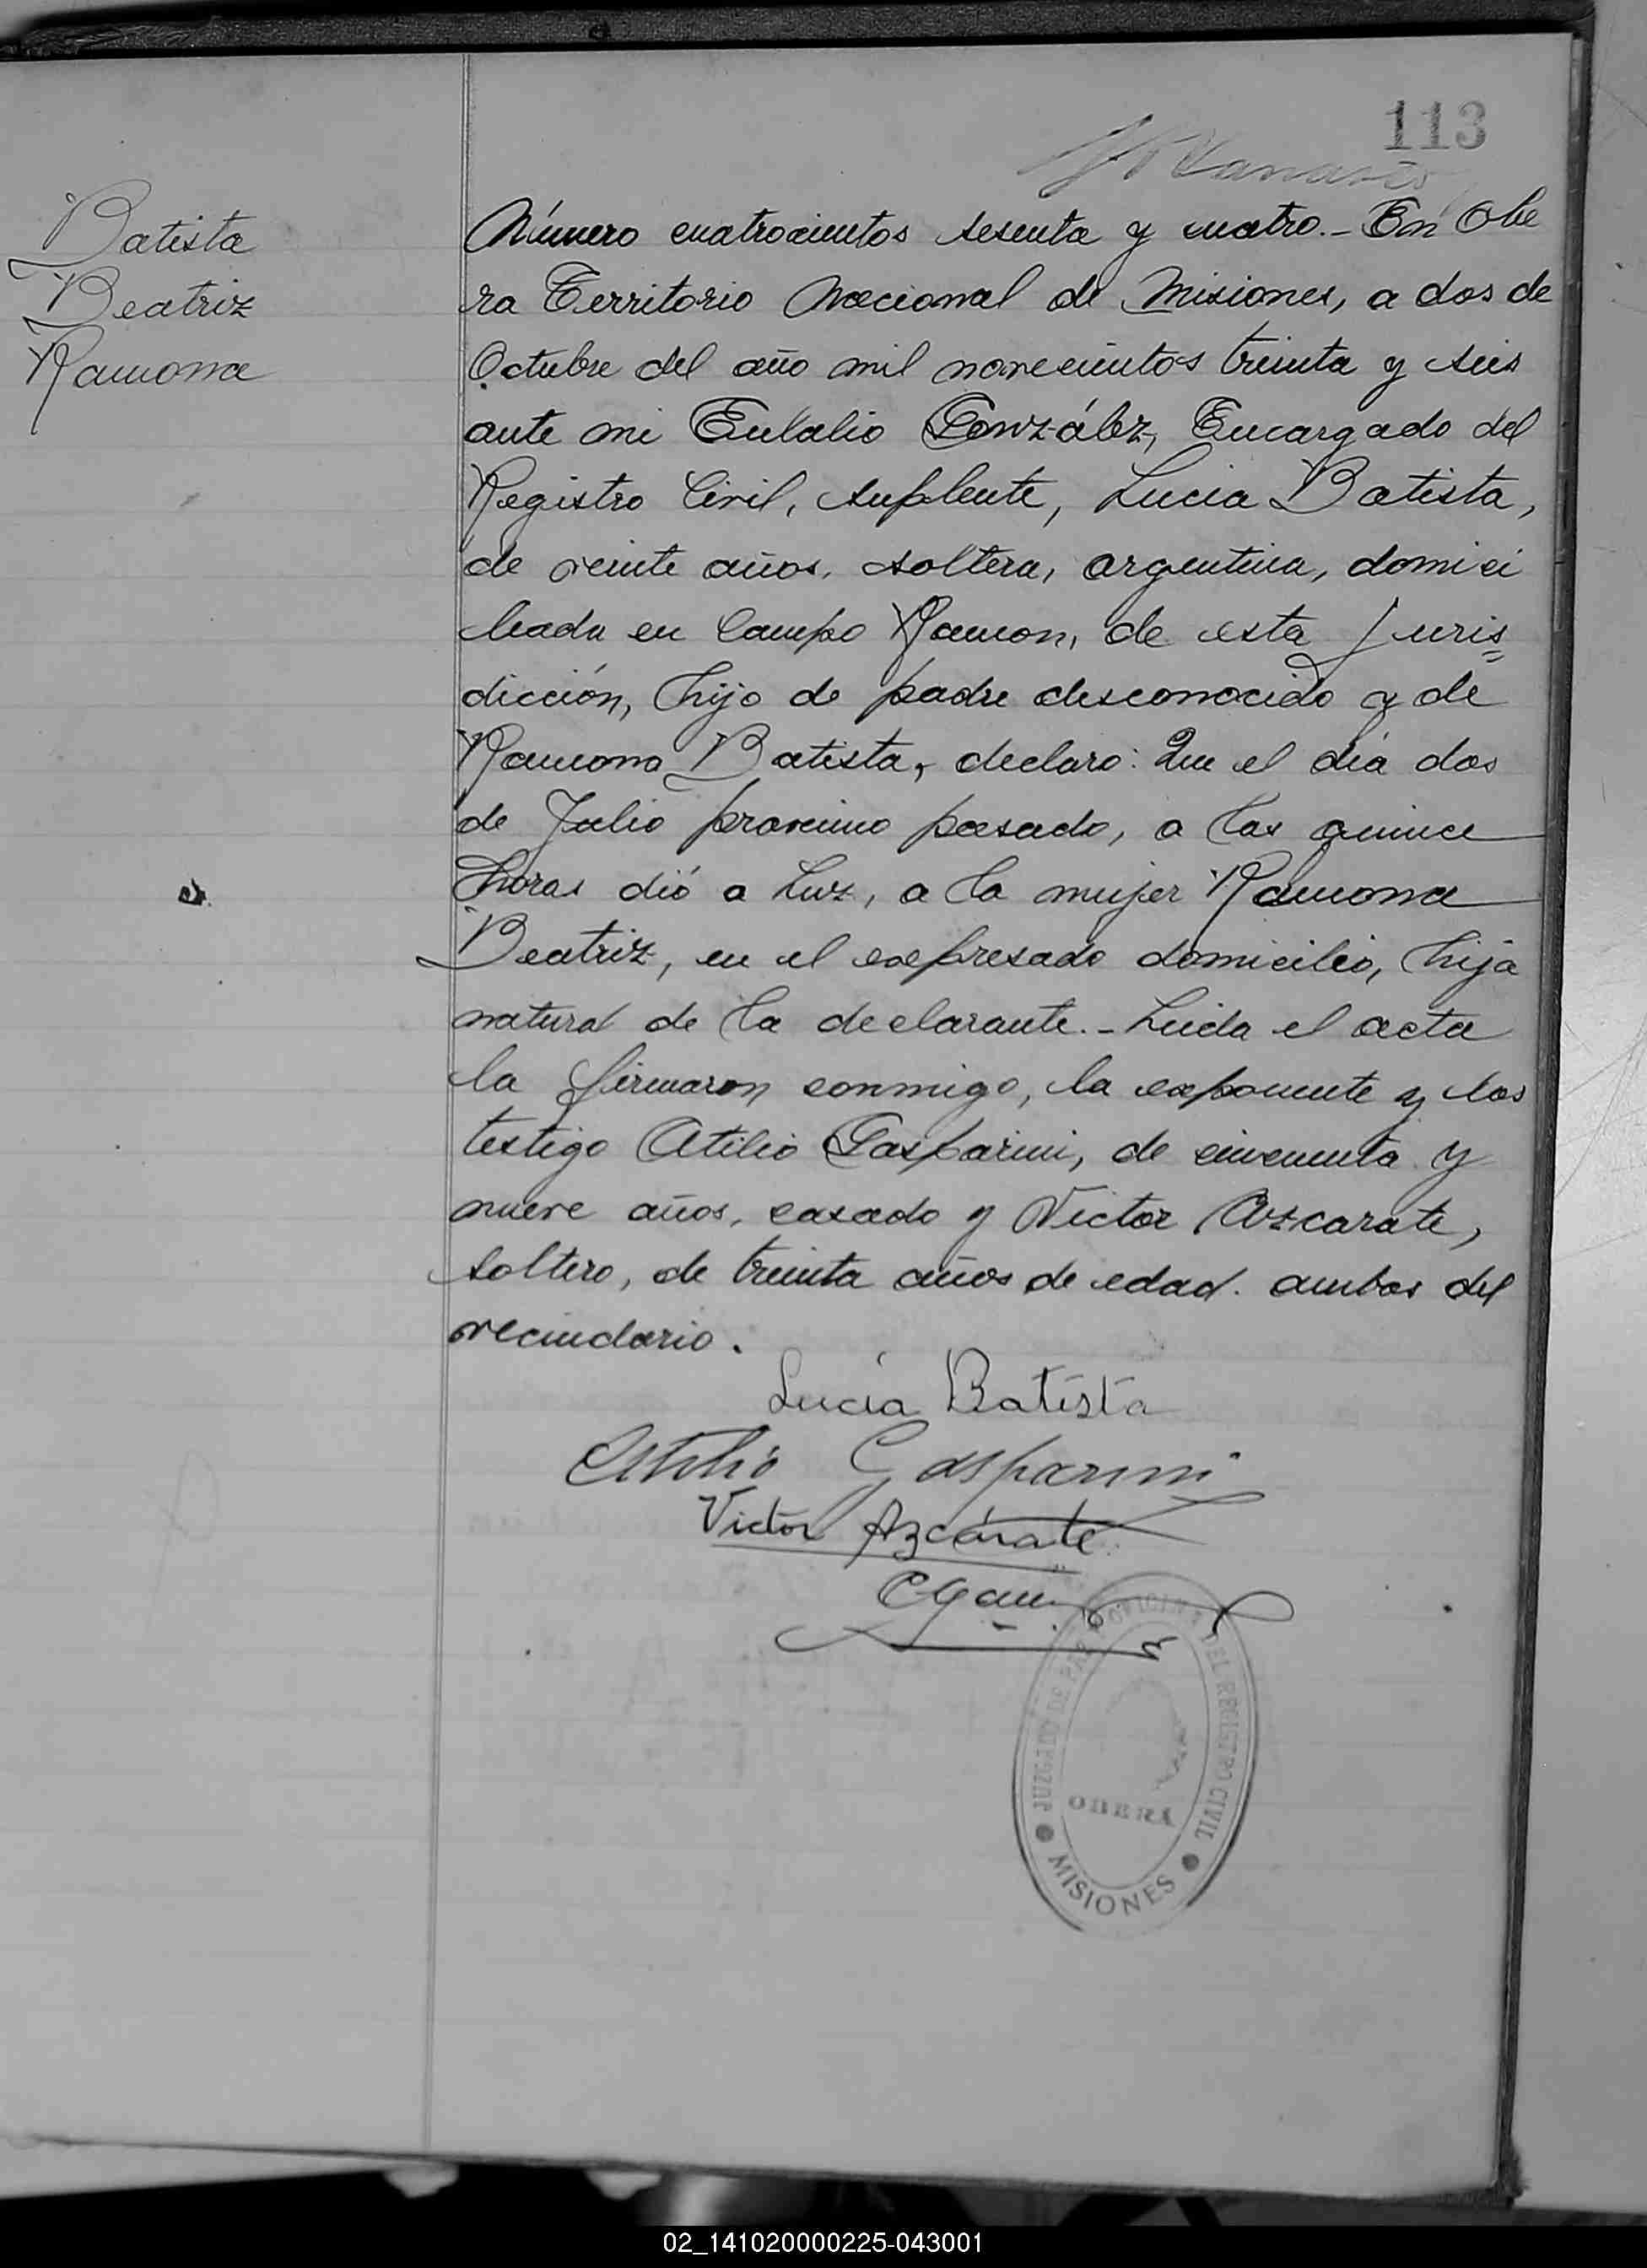 113
Batista
Beatriz
Ramona
Número cuatrocientos sesenta y cuatro.- En Obe
ra Territorio Nacional de Misiones, a dos de
Octubre del año mil novecientos treinta y seis
ante mi Eulalio González, Encargado del
Registro Civil, suplente, Lucia Batista,
de veinte años, soltera, argentina, domici
liada en Campo Ramon, de esta Juris=
dicción, hijo de padre desconocido y de
Ramona Batista, declaro: Que el día dos
de Julio proximo pasado, a las quince
horas dió a luz, a la mujer Ramona
Beatriz, en el expresado domicilio, hija
natural de la declarante.- Leida el acta
la firmaron conmigo, la exponente y los
testigo Atilio Gasparini, de cincuenta y
nueve años, casado y Victor Azcarate,
soltero, de treinta años de edad. ambos del
vecindario.
Lucía Batista
Atilio Gasparini
Victor Azcárate
JUZGADO DE PAZ DEL REGISTRO CIVIL
OBERÁ
MISIONES
02_141020000225-043001